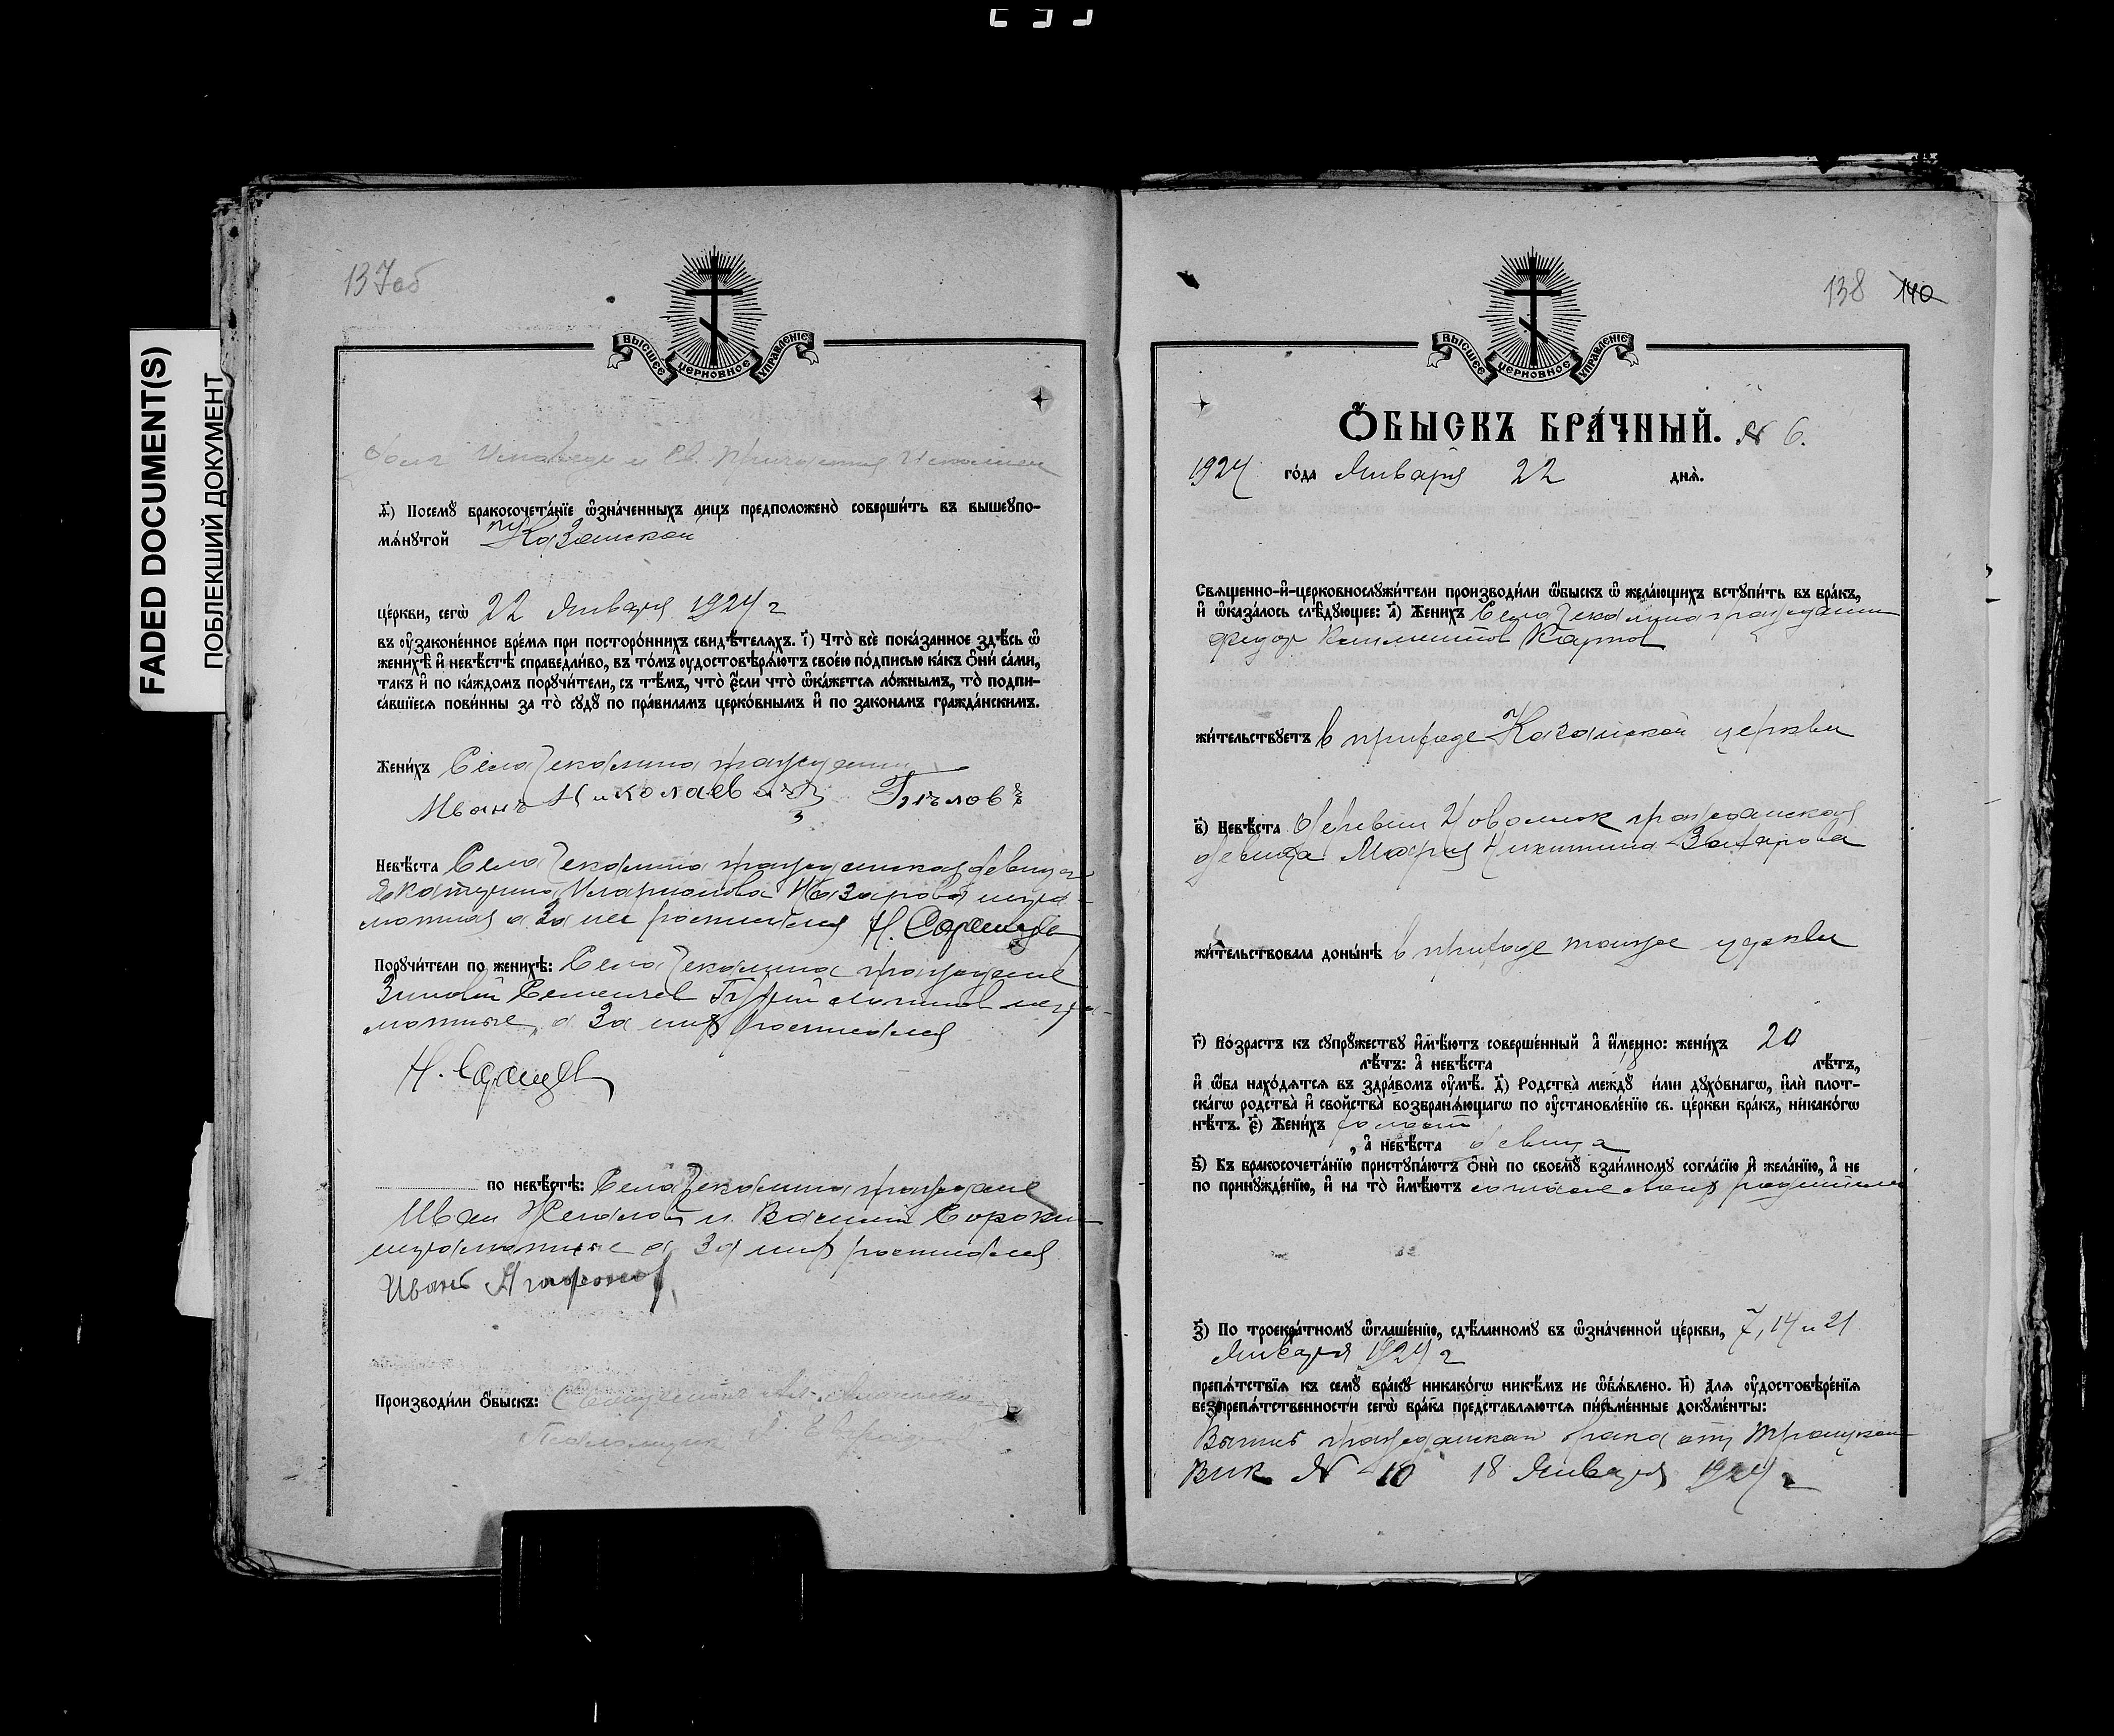 FADED DOCUMENT(S)
ПОБЛЕКШИЙ ДОКУМЕНТ
137об
ВЫСШЕЕ ЦЕРКОВНОЕ УПРАВЛЕНІЕ
Долг Исповеди и Св. Причастия Исполнен
д҃) Посемꙋ бракосочета́нїе ѡзна́ченныхъ лицъ предположено̀ соверши́ть въ вышеупо-
мѧ́нутой Казанской
це́ркви, сегѡ̀ 22 Января 1924 г
въ оу҆зако́ненное вре́мя при посторо́ннихъ свидѣ́телѧхъ. і҃) Что̀ всѐ пока́занное здѣ́сь ѡ҆
женихѣ̀ и҆ невѣ́стѣ справедли́во, въ то́мъ оу҆достовѣрѧ́ютъ свое́ю по́дписью ка́къ ѻ҆нѝ са́ми,
такъ и҆ по ка́ждомъ поручи́тели, съ тѣ́мъ, что̀ є҆́сли что̀ ѡ҆ка́жется ло́жнымъ, то̀ подпи-
са́вшїеся пови́нны за то̀ сꙋдꙋ̀ по пра́виламъ церко́внымъ и҆ по зако́намъ гражда́нскимъ.
Жени́хъ Села Чекалина гражданин
Иванъ Николаевичъ Бѣловъ
Невѣ́ста Села Чекалина гражданская девица
Екатерина Иларионова Назарова негра-
мотная а за нее росписался Н. Саранцев
Порꙋчи́тели по женихѣ̀: Села Чекалина граждане
Зиновий Семенчев Гурий негра-
мотные, а за них росписался
Н. Саранцев
по невѣ́стѣ: Села Чекалина граждане
Иван и Василий Сорокин
неграмотные а за них росписался
Иванъ Агафонов
Производи́ли ѻ҆́быскъ: Священник
Псаломщик
138 140
ВЫСШЕЕ ЦЕРКОВНОЕ УПРАВЛЕНІЕ
Ѻ҆́БЫСКЪ БРА́ЧНЫЙ. № 6.
1924 го́да Января 22 днѧ̀.
Свѧще́нно-и҆-церковнослꙋжи́тели производи́ли ѻ҆́быскъ ѡ҆ жела́ющихъ встꙋпи́ть въ бра́къ,
и҆ ѡ҆каза́лось слѣ́дꙋющее: а҃) Жени́хъ Села Чекалина гражданин
Федор Климентов Карпов
жи́тельствꙋетъ в приходе Казанской церкви
в҃) Невѣ́ста деревни гражданская
девица Мария Никитина Захарова
жи́тельствовала донынѣ̀ в приходе той же церкви
г҃) Во́зрастъ къ сꙋпрꙋ́жествꙋ и҆мѣ́ютъ соверше́нный а҆ и҆́менно: жени́хъ 20
лѣ́тъ: а҆ невѣ́ста 18 лѣ́тъ,
и҆ ѻ҆́ба нахо́дятся въ здра́вомъ оу҆мѣ̀. д҃) Родства̀ междꙋ̀ и́ми дꙋхо́внагѡ, и҆лѝ пло́т-
скагѡ родства̀ и҆ сво́йства возбранѧ́ющагѡ по оу҆становле́нїю св. це́ркви бра́къ, никако́гѡ
нѣ́тъ. е҃) Жени́хъ холост
, а҆ невѣ́ста девица
ѕ҃) Къ бракосочета́нїю пристꙋпа́ютъ ѻ҆нѝ по своемꙋ̀ взаи́мномꙋ согла́сїю и҆ жела́нїю, а҆ не
по принꙋжде́нїю, и҆ на то̀ и҆мѣ́ютъ согласие своих родителей
з҃) По троекра́тномꙋ ѡ҆глаше́нїю, сдѣ́ланномꙋ въ ѡ҆зна́ченной це́ркви, 7, 14 и 21
Января 1924 г
препѧ́тствїя къ семꙋ̀ бра́кꙋ никако́гѡ никѣ́мъ не ѡ҆б̾ѧ́влено. и҃) Длѧ оу҆достовѣре́нїя
безпрепѧ́тственности сегѡ̀ бра́ка представлѧ́ются пи́сьменные докꙋме́нты:
Выпись гражданскаго брака от Троицкаго
Вик № 10 18 Января 1924 г